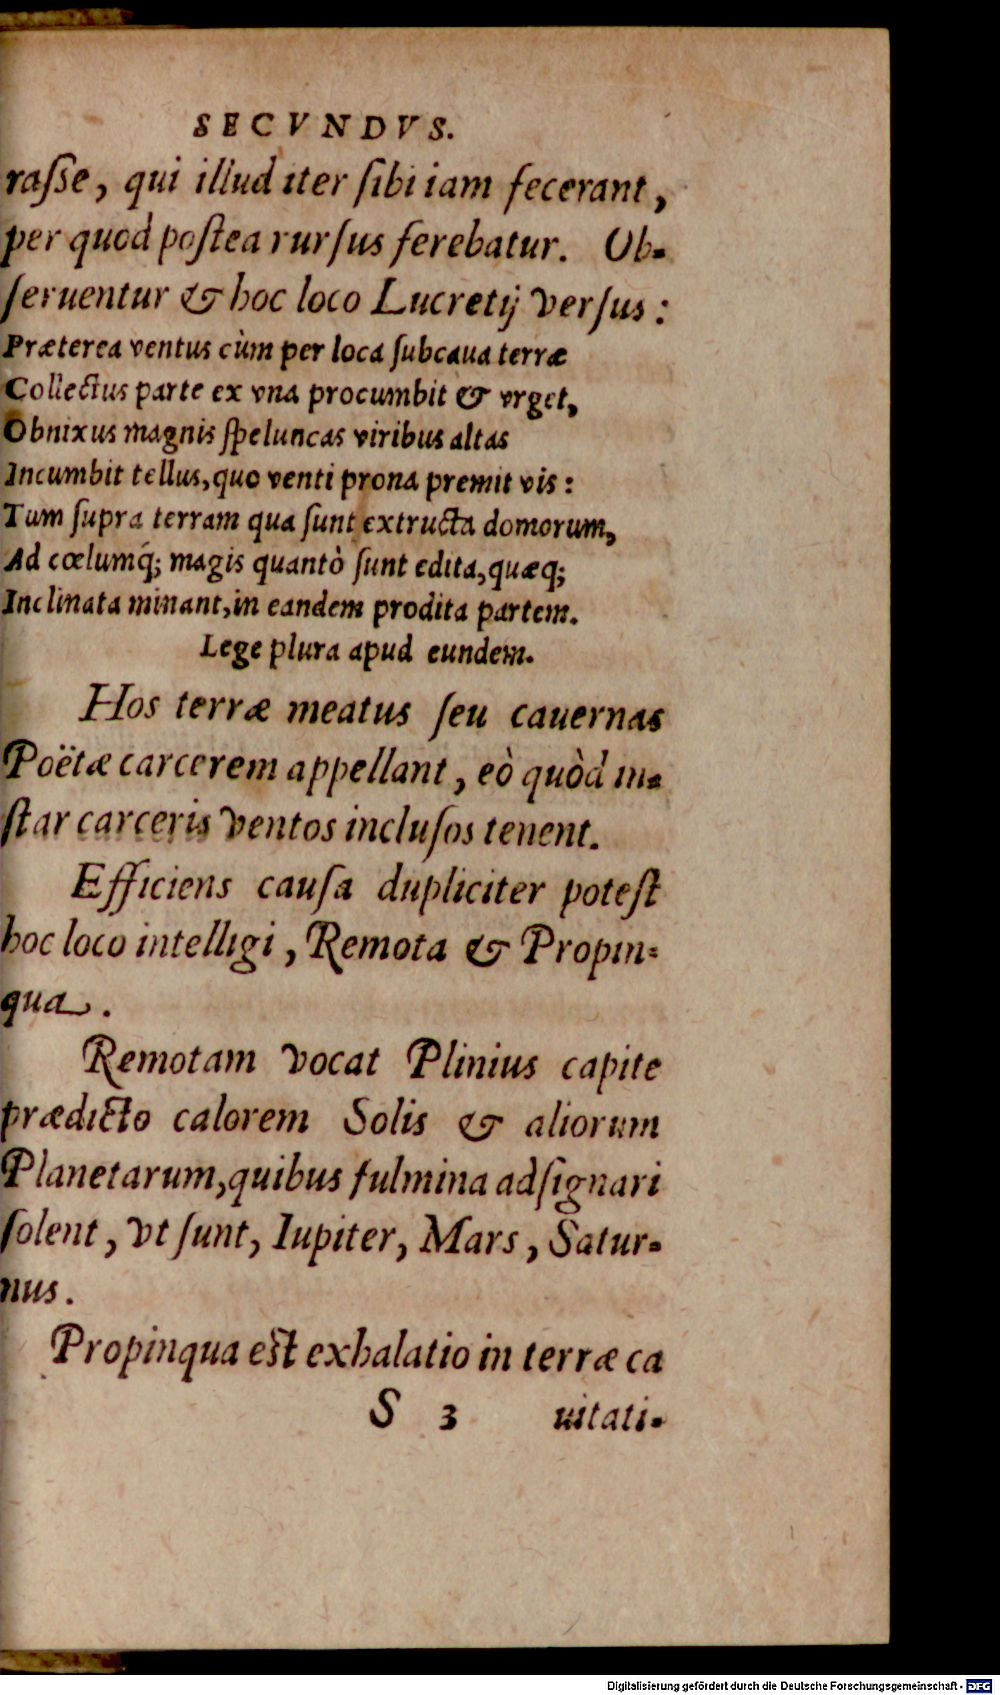 SECVNDVS.
raſſe, qui illud iter ſibi iam fecerant,
per quod poſtea rurſus ferebatur. Ob-
ſeruentur & hoc loco Lucretij verſus:
Præterea ventus cùm per loca ſubcaua terræ
Collectus parte ex vna procumbit & vrget,
Obnixus magnis ſpeluncas viribus altas
Incumbit tellus, quo venti prona premit vis:
Tum ſupra terram qua ſunt extructa domorum,
Ad cœlumq́; magis quantò ſunt edita, quæq;
Inclinata minant, in eandem prodita partem.
Lege plura apud eundem.
Hos terræ meatus ſeu cauernas
Poëtæ carcerem appellant, eò quòd in-
ſtar carceris ventos incluſos tenent.
Efficiens cauſa dupliciter poteſt
hoc loco intelligi, Remota & Propin-
qua.
Remotam vocat Plinius capite
prædicto calorem Solis & aliorum
Planetarum, quibus fulmina adſignari
ſolent, vt ſunt, Iupiter, Mars, Satur-
nus.
Propinqua eſt exhalatio in terræ ca
S 3 uitati-
Digitalisierung gefördert durch die Deutsche Forschungsgemeinschaft - DFG